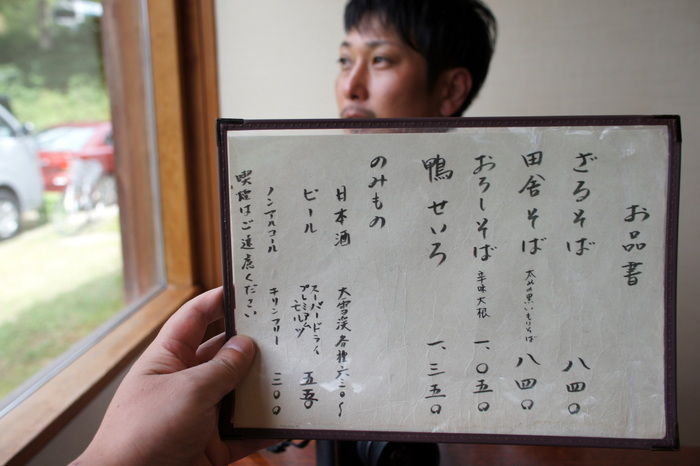 お品書
ざるそば 八四〇
田舎そば 太めの黒いもりそば 八四〇
おろしそば 辛味大根 一、〇五〇
鴨せいろ 一、三五〇
のみもの
日本酒 大雪渓各種 六三〇〜
ビール スーパードライ プレミアムモルツ 五五〇
ノンアルコール キリンフリー 三〇〇
喫煙はご遠慮ください